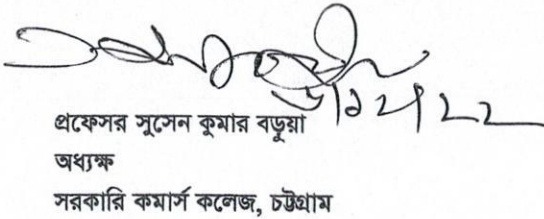 প্রফেসর সুসেন কুমার বড়ুয়া
অধ্যক্ষ
সরকারি কমার্স কলেজ, চট্টগ্রাম